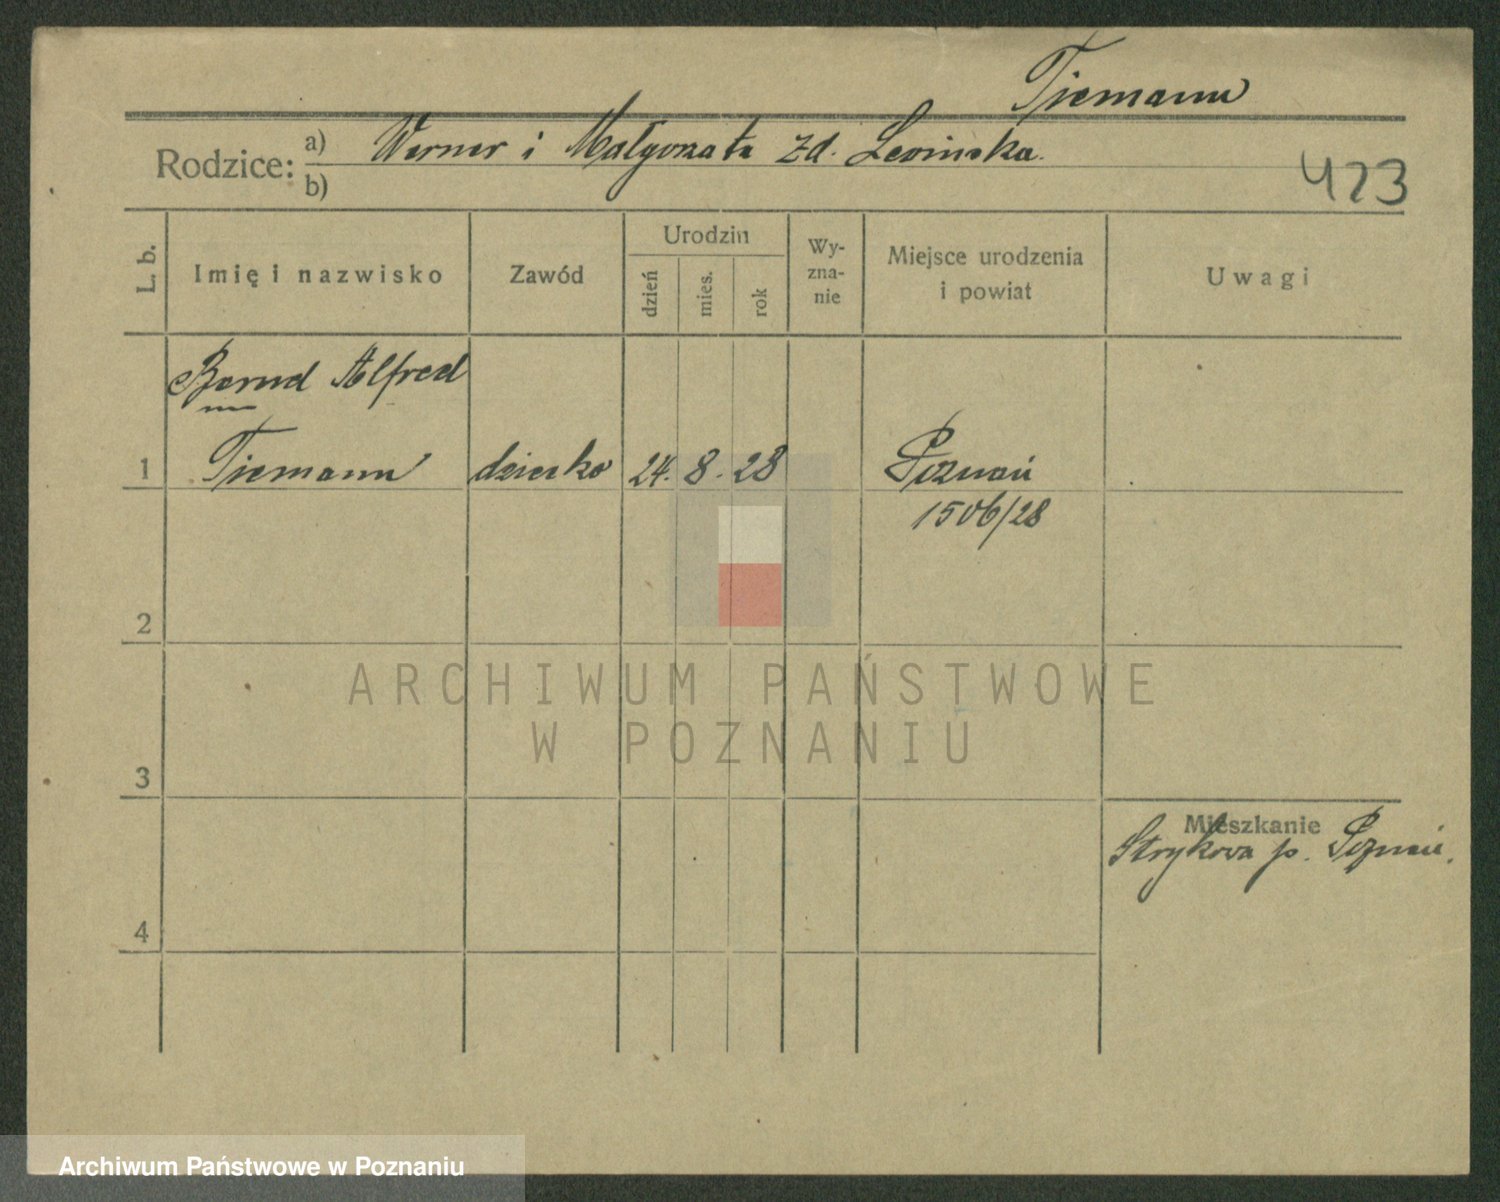 Tiemann
Rodzice: a) Werner i Małgorzata zd. Lewinska.
b)
423
L. b.
Imię i nazwisko
Zawód
Urodzin
dzień
mies.
rok
Wy-
zna-
nie
Miejsce urodzenia
i powiat
Uwagi
Bernd Alfred
1 Tiemann dziecko 24. 8. 28 Poznań
1506/28
2
ARCHIWUM PAŃSTWOWE
W POZNANIU
3
Mieszkanie
Strykowa p. Poznań.
4
Archiwum Państwowe w Poznaniu